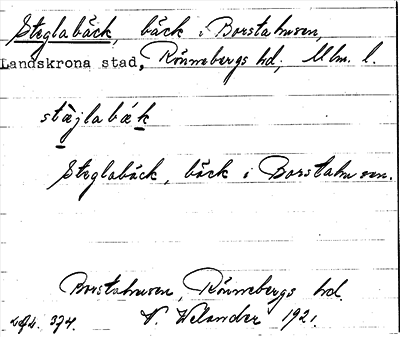 Steglabäck, bäck i Borstahusen,
Landskrona stad, Rönnebergs hd, Mlm. l.
stæ̀jlabæk
Steglabäck, bäck i Borstahusen.
Borstahusen, Rönnebergs hd.
N. Welander 1921.